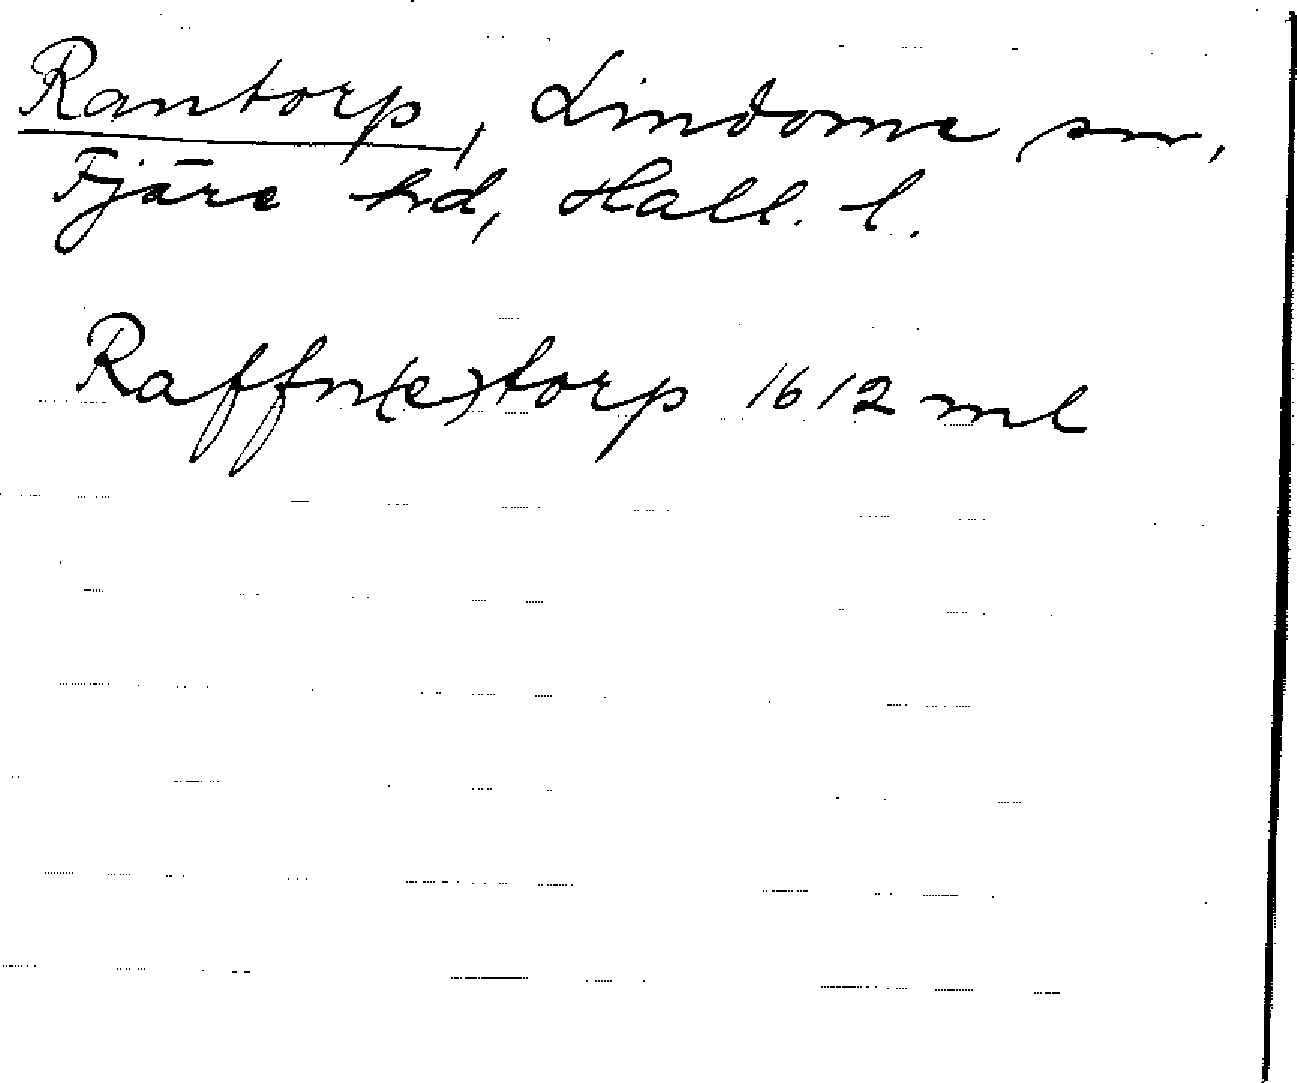 Rantorp, Lindome sn,
Fjäre hd, Hall. l.
Raffn(e)torp 1612 ml